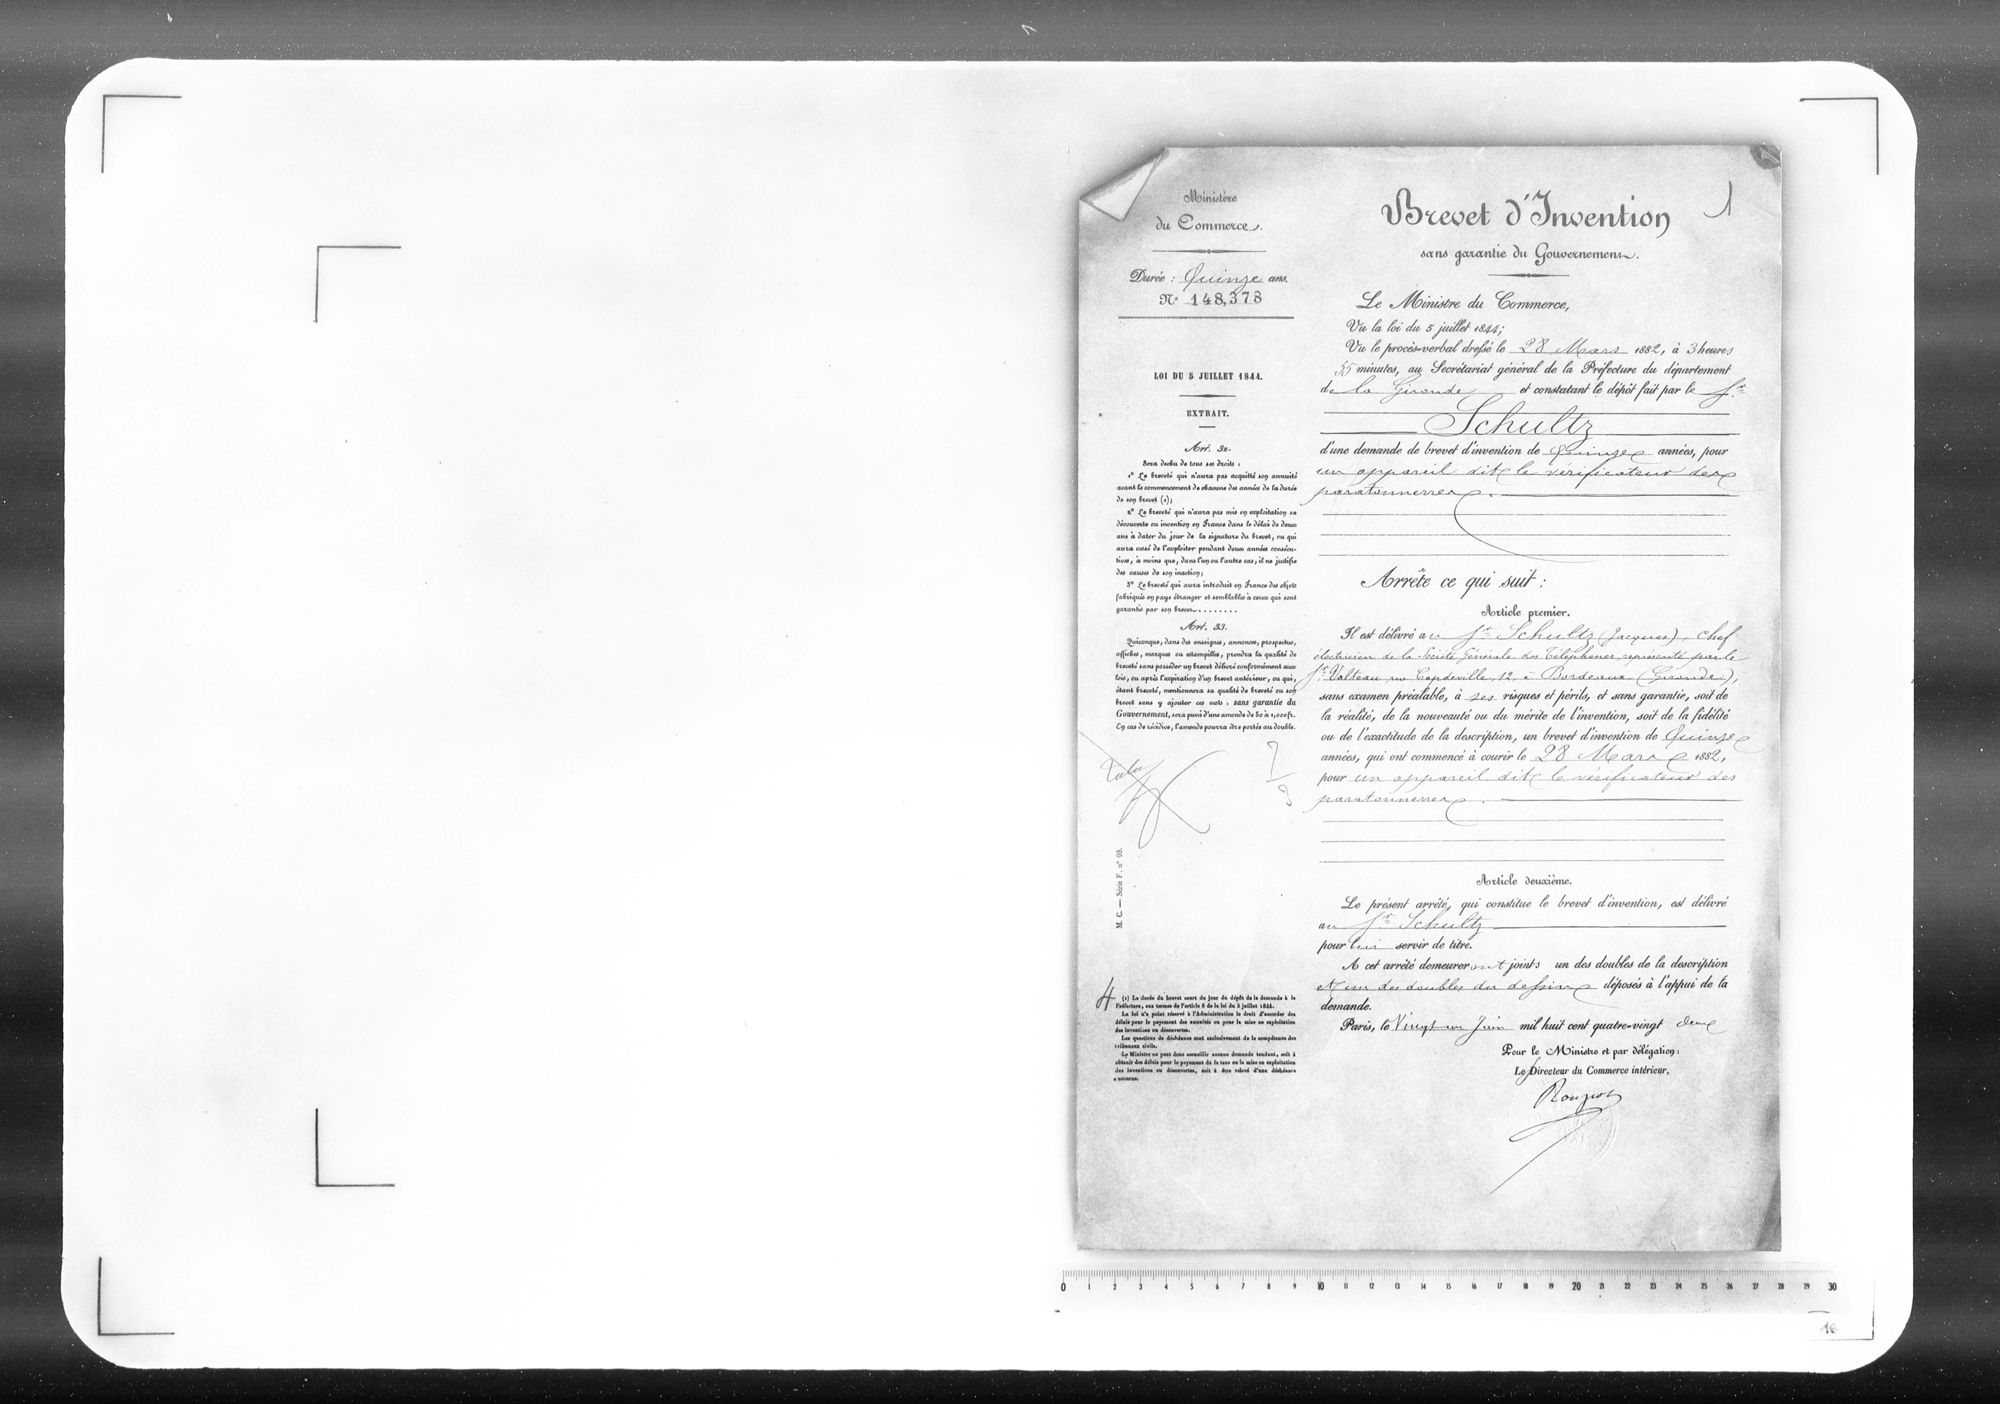 Ministère
du Commerce.
Durée : Quinze ans.
N° 148,378
LOI DU 5 JUILLET 1844.
EXTRAIT.
Art. 32.
Sera déchu de tous ses droits :
1° Le breveté qui n'aura pas acquitté son annuité
avant le commencement de chacune des années de la durée
de son brevet (1);
2° Le breveté qui n'aura pas mis en exploitation sa
découverte ou invention en France dans le délai de deux
ans à dater du jour de la signature du brevet, ou qui
aura cessé de l'exploiter pendant deux années consécu-
tives, à moins que, dans l'un ou l'autre cas, il ne justifie
des causes de son inaction;
3° Le breveté qui aura introduit en France des objets
fabriqués en pays étranger et semblables à ceux qui sont
garantis par son brevet........
Art. 33.
Quiconque, dans des enseignes, annonces, prospectus,
affiches, marques ou estampilles, prendra la qualité de
breveté sans posséder un brevet délivré conformément aux
lois, ou après l'expiration d'un brevet antérieur, ou qui,
étant breveté, mentionnera sa qualité de breveté ou son
brevet sans y ajouter ces mots : sans garantie du
Gouvernement, sera puni d'une amende de 50 à 1,000 fr.
En cas de récidive, l'amende pourra être portée au double.
M. C. — Série F. n° 98.
4
(1) La durée du brevet court du jour du dépôt de la demande à la
Préfecture, aux termes de l'article 8 de la loi du 5 juillet 1844.
La loi n'a point réservé à l'Administration le droit d'accorder des
délais pour le payement des annuités ou pour la mise en exploitation
des inventions ou découvertes.
Les questions de déchéance sont exclusivement de la compétence des
tribunaux civils.
Le Ministre ne peut donc accueillir aucune demande tendant, soit à
obtenir des délais pour le payement de la taxe ou la mise en exploitation
des inventions ou découvertes, soit à être relevé d'une déchéance
encourue.
1
Brevet d'Invention
sans garantie du Gouvernement.
Le Ministre du Commerce,
Vu la loi du 5 juillet 1844;
Vu le procès-verbal dressé le 28 Mars 1882, à 3 heures
55 minutes, au Secrétariat général de la Préfecture du département
de la Gironde et constatant le dépôt fait par le Sr.
Schultz
d'une demande de brevet d'invention de Quinze années, pour
un appareil dit le vérificateur des
paratonnerres.
Arrête ce qui suit :
Article premier.
Il est délivré au Sr. Schultz (Jacques), chef
électricien de la Société Générale des Téléphones, représenté par le
Sr. Valteau rue Capdeville, 12, à Bordeaux (Gironde),
sans examen préalable, à ses risques et périls, et sans garantie, soit de
la réalité, de la nouveauté ou du mérite de l'invention, soit de la fidélité
ou de l'exactitude de la description, un brevet d'invention de Quinze
années, qui ont commencé à courir le 28 Mars 1882,
pour un appareil dit le vérificateur des
paratonnerres.
Article deuxième.
Le présent arrêté, qui constitue le brevet d'invention, est délivré
au Sr. Schultz
pour lui servir de titre.
A cet arrêté demeureront joints un des doubles de la description
et un des doubles du dessin déposés à l'appui de la
demande.
Paris, le Vingt un Juin mil huit cent quatre-vingt deux
Pour le Ministre et par délégation :
Le Directeur du Commerce intérieur,
0 1 2 3 4 5 6 7 8 9 10 11 12 13 14 15 16 17 18 19 20 21 22 23 24 25 26 27 28 29 30
16